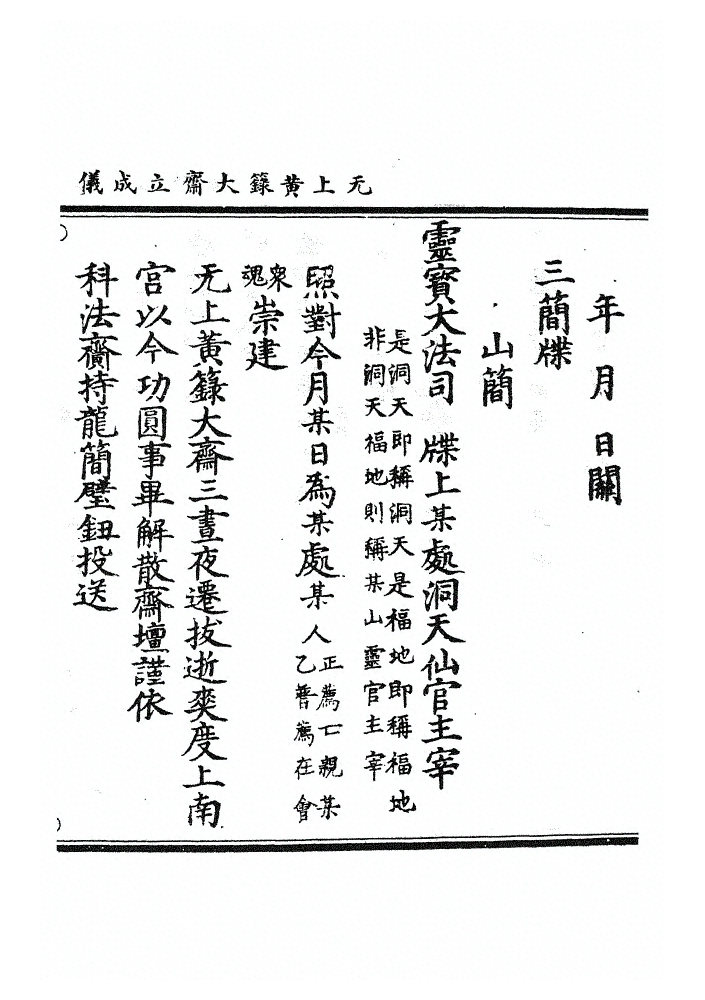 无上黃籙大齋立成儀
年月日關
三簡牒
山簡
靈寶大法司牒上某處洞天仙官主宰
是洞天即稱洞天是福地即稱福地
非洞天福地則稱某山靈官主宰
照對今月某日為某處某人正薦亡親某
乙普薦在會
衆
魂崇建
无上黃籙大齋三晝夜遷拔逝爽度上南
宮以今功圓事畢解散齋壇謹依
科法齎持龍簡璧鈕投送